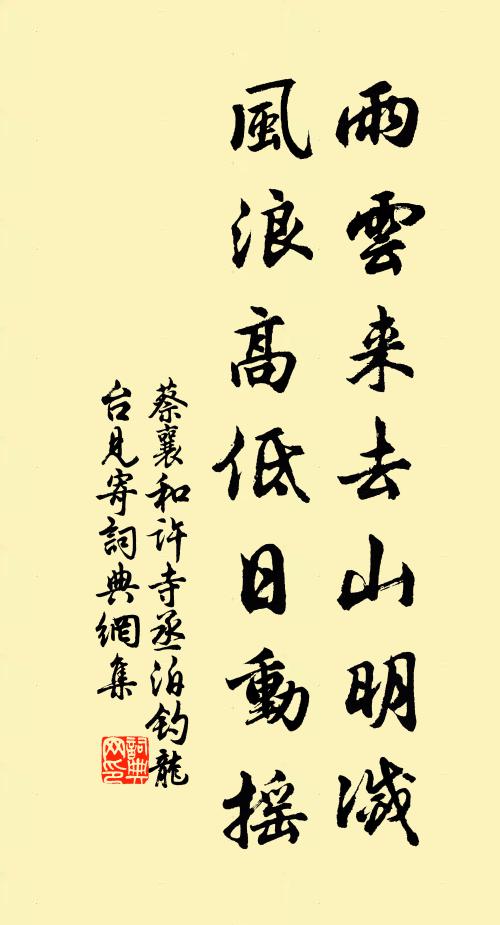 雨雲来去山明滅
風浪高低日動摇
蔡襄和許寺丞泊钓龍
台見寄詞典網集
詞典
网印